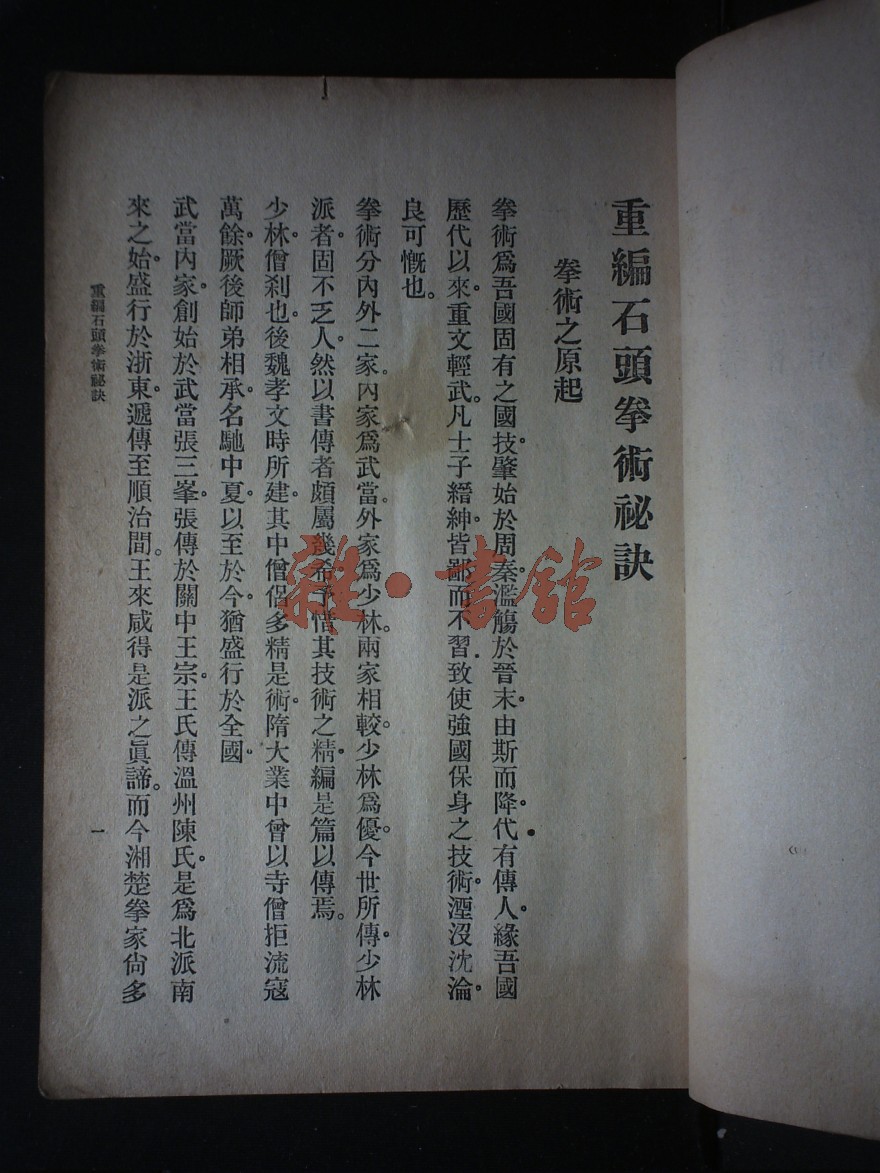 重編石頭拳術祕訣
拳術之原起
拳術爲吾國固有之國技。肇始於周秦。濫觴於晉末。由斯而降。代有傳人。緣吾國
歷代以來。重文輕武。凡士子縉紳。皆鄙而不習。致使強國保身之技術。湮沒沈淪。
良可慨也。
拳術分內外二家。內家爲武當。外家爲少林。兩家相較。少林爲優。今世所傳。少林
派者。固不乏人。然以書傳者。頗屬幾希。予惜其技術之精。編是篇以傳焉。
少林。僧刹也。後魏孝文時所建。其中僧侶多精是術。隋大業中。曾以寺僧拒流寇
萬餘。厥後師弟相承。名馳中夏。以至於今。猶盛行於全國。
武當內家。創始於武當張三峯。張傳於關中王宗。王氏傳溫州陳氏。是爲北派南
來之始。盛行於浙東。遞傳至順治間。王來咸得是派之眞諦。而今湘楚拳家尙多
重編石頭拳術祕訣
一
雜·書館